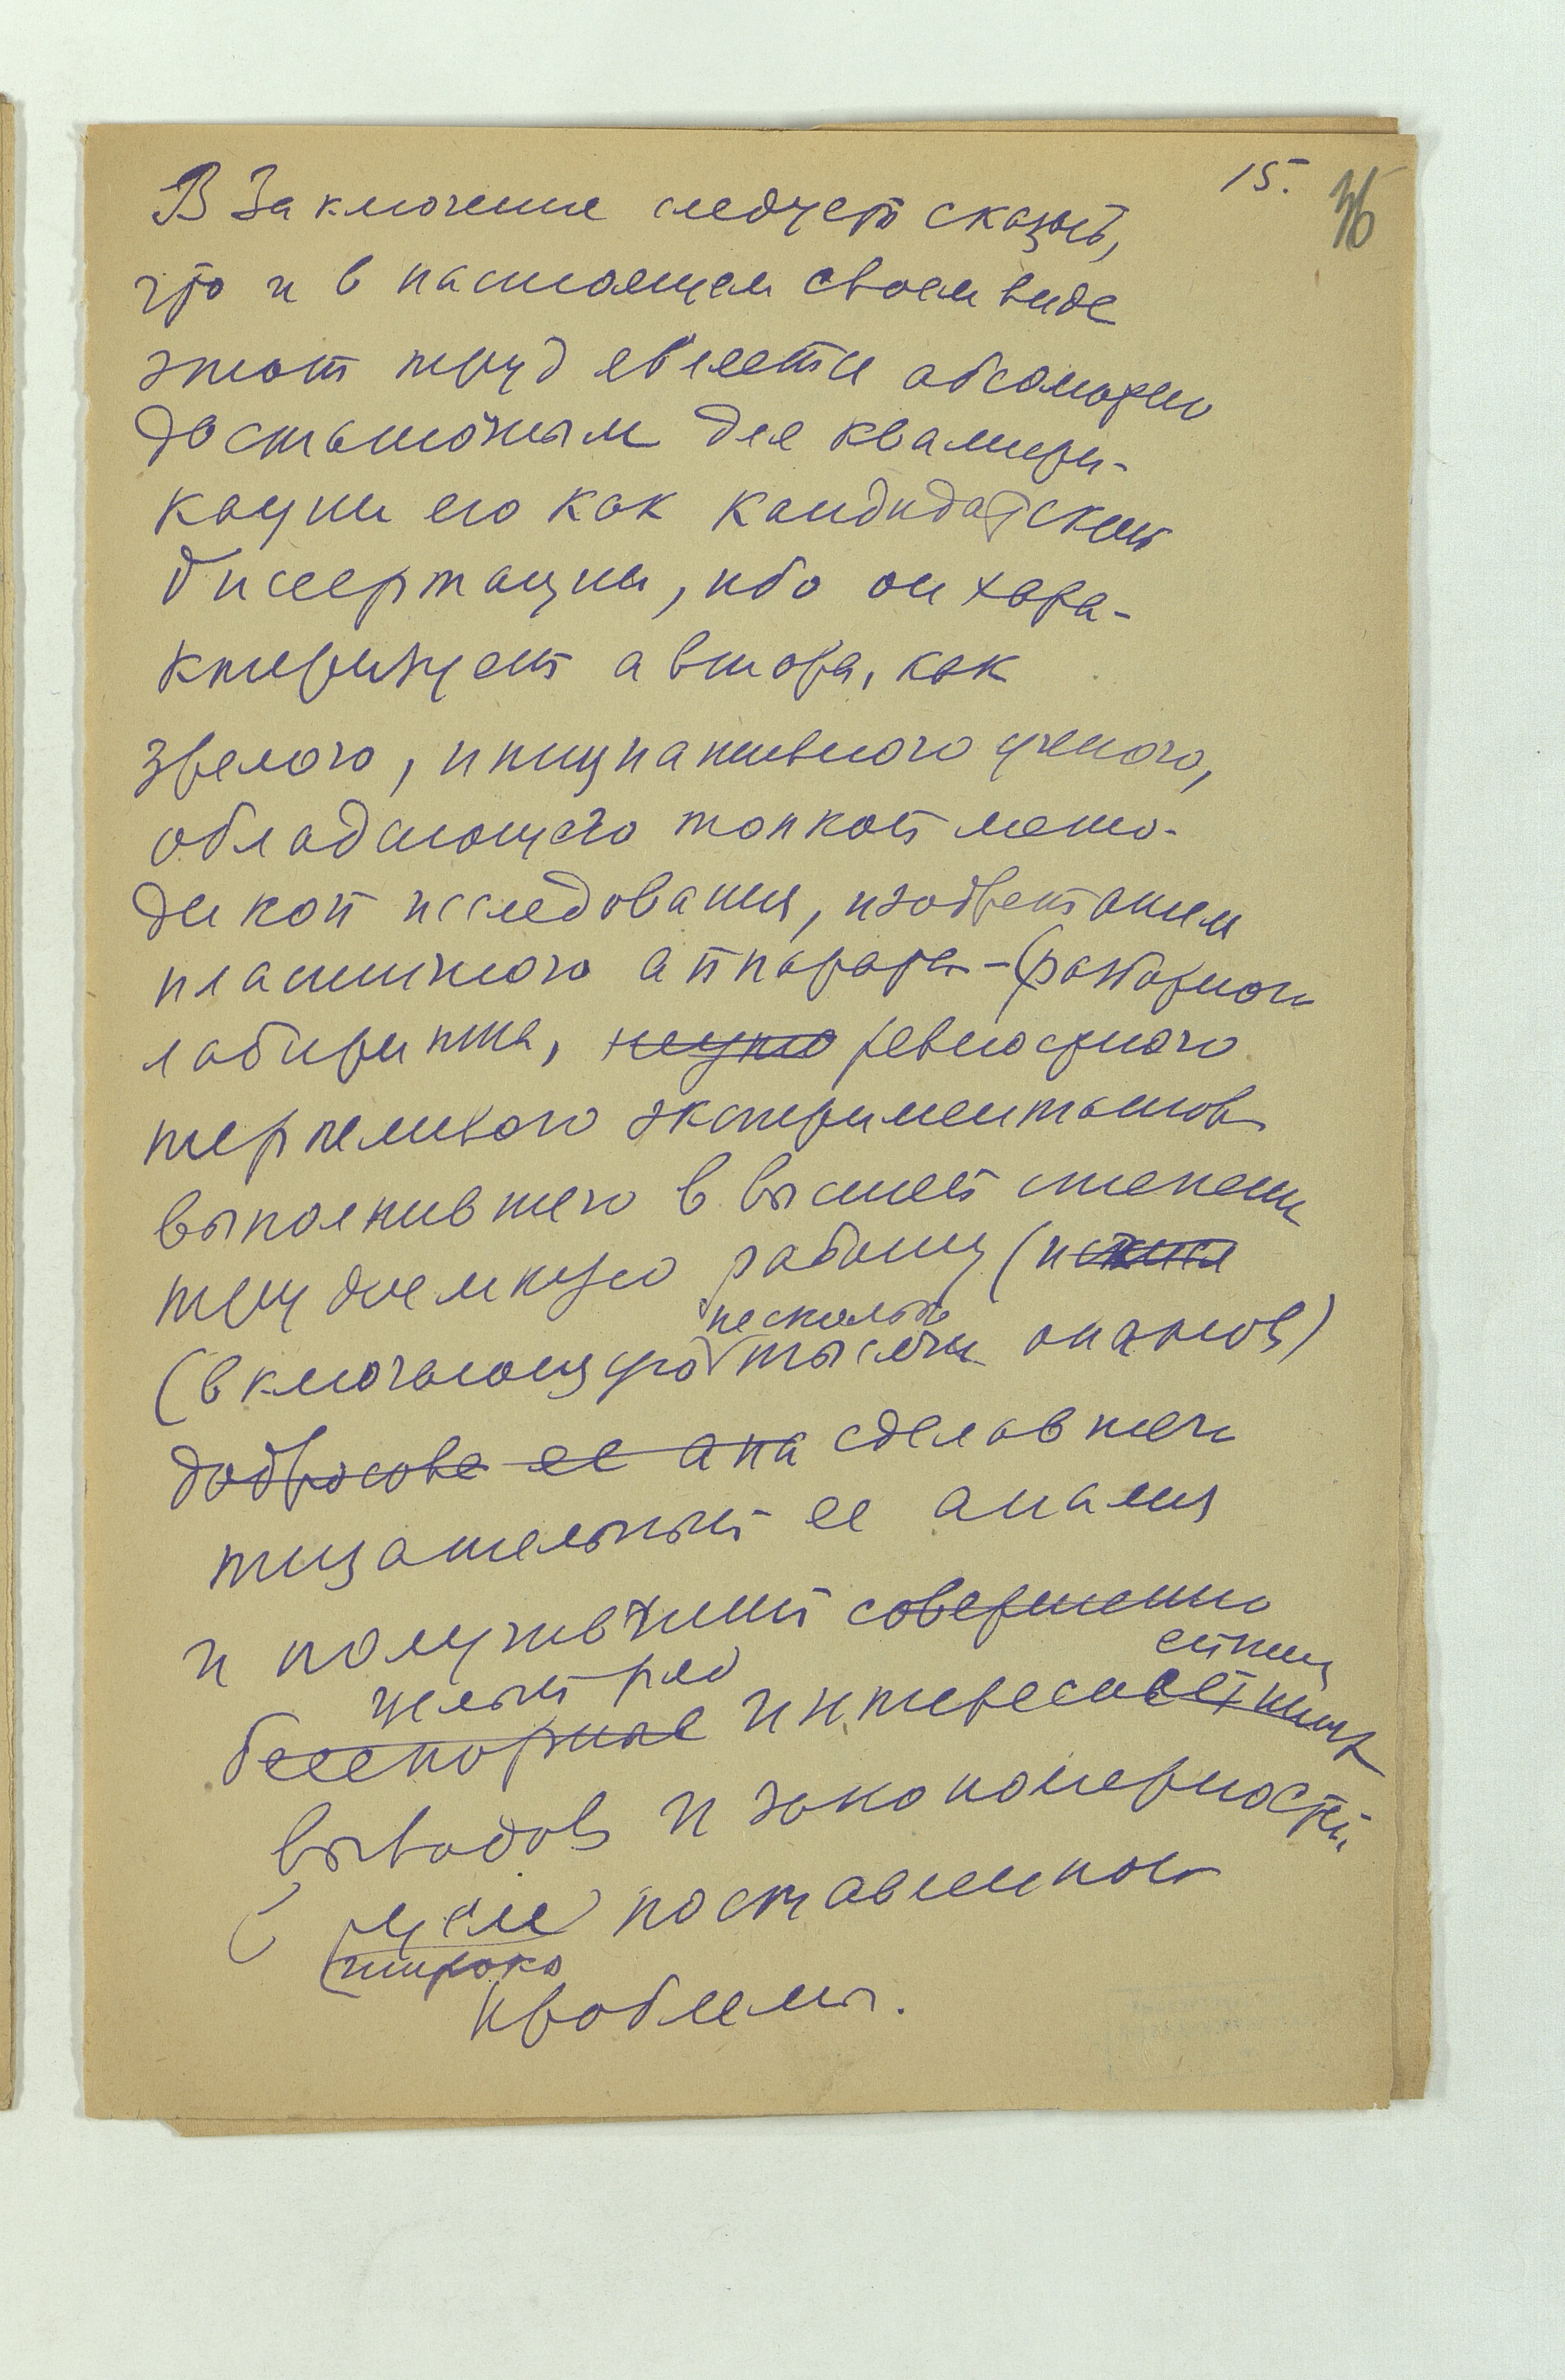 15.
36
В заключение следует сказать,
что и в настоящем своем виде
этот труд является абсолютно
достаточным для квалифи-
кации его как кандидатской
диссертации, ибо он хара-
ктеризует автора, как
зрелого, инициативного ученого,
обладающего тонкой мето-
дикой исследования, изобретателя
пластичного аппарата-(разборного
лабиринта, ревностного
терпеливого экспериментатора
выполнившего в высшей степени
трудоемкую работу (
несколько
(включающую тысячи опытов)
добросове ее ана сделавшего
тщательный ее анализ
и получивший совершенно
сейших
целый ряд
бесспорные интересн
выводов и закономерностей
(цели поставленной
(широко
проблемы.